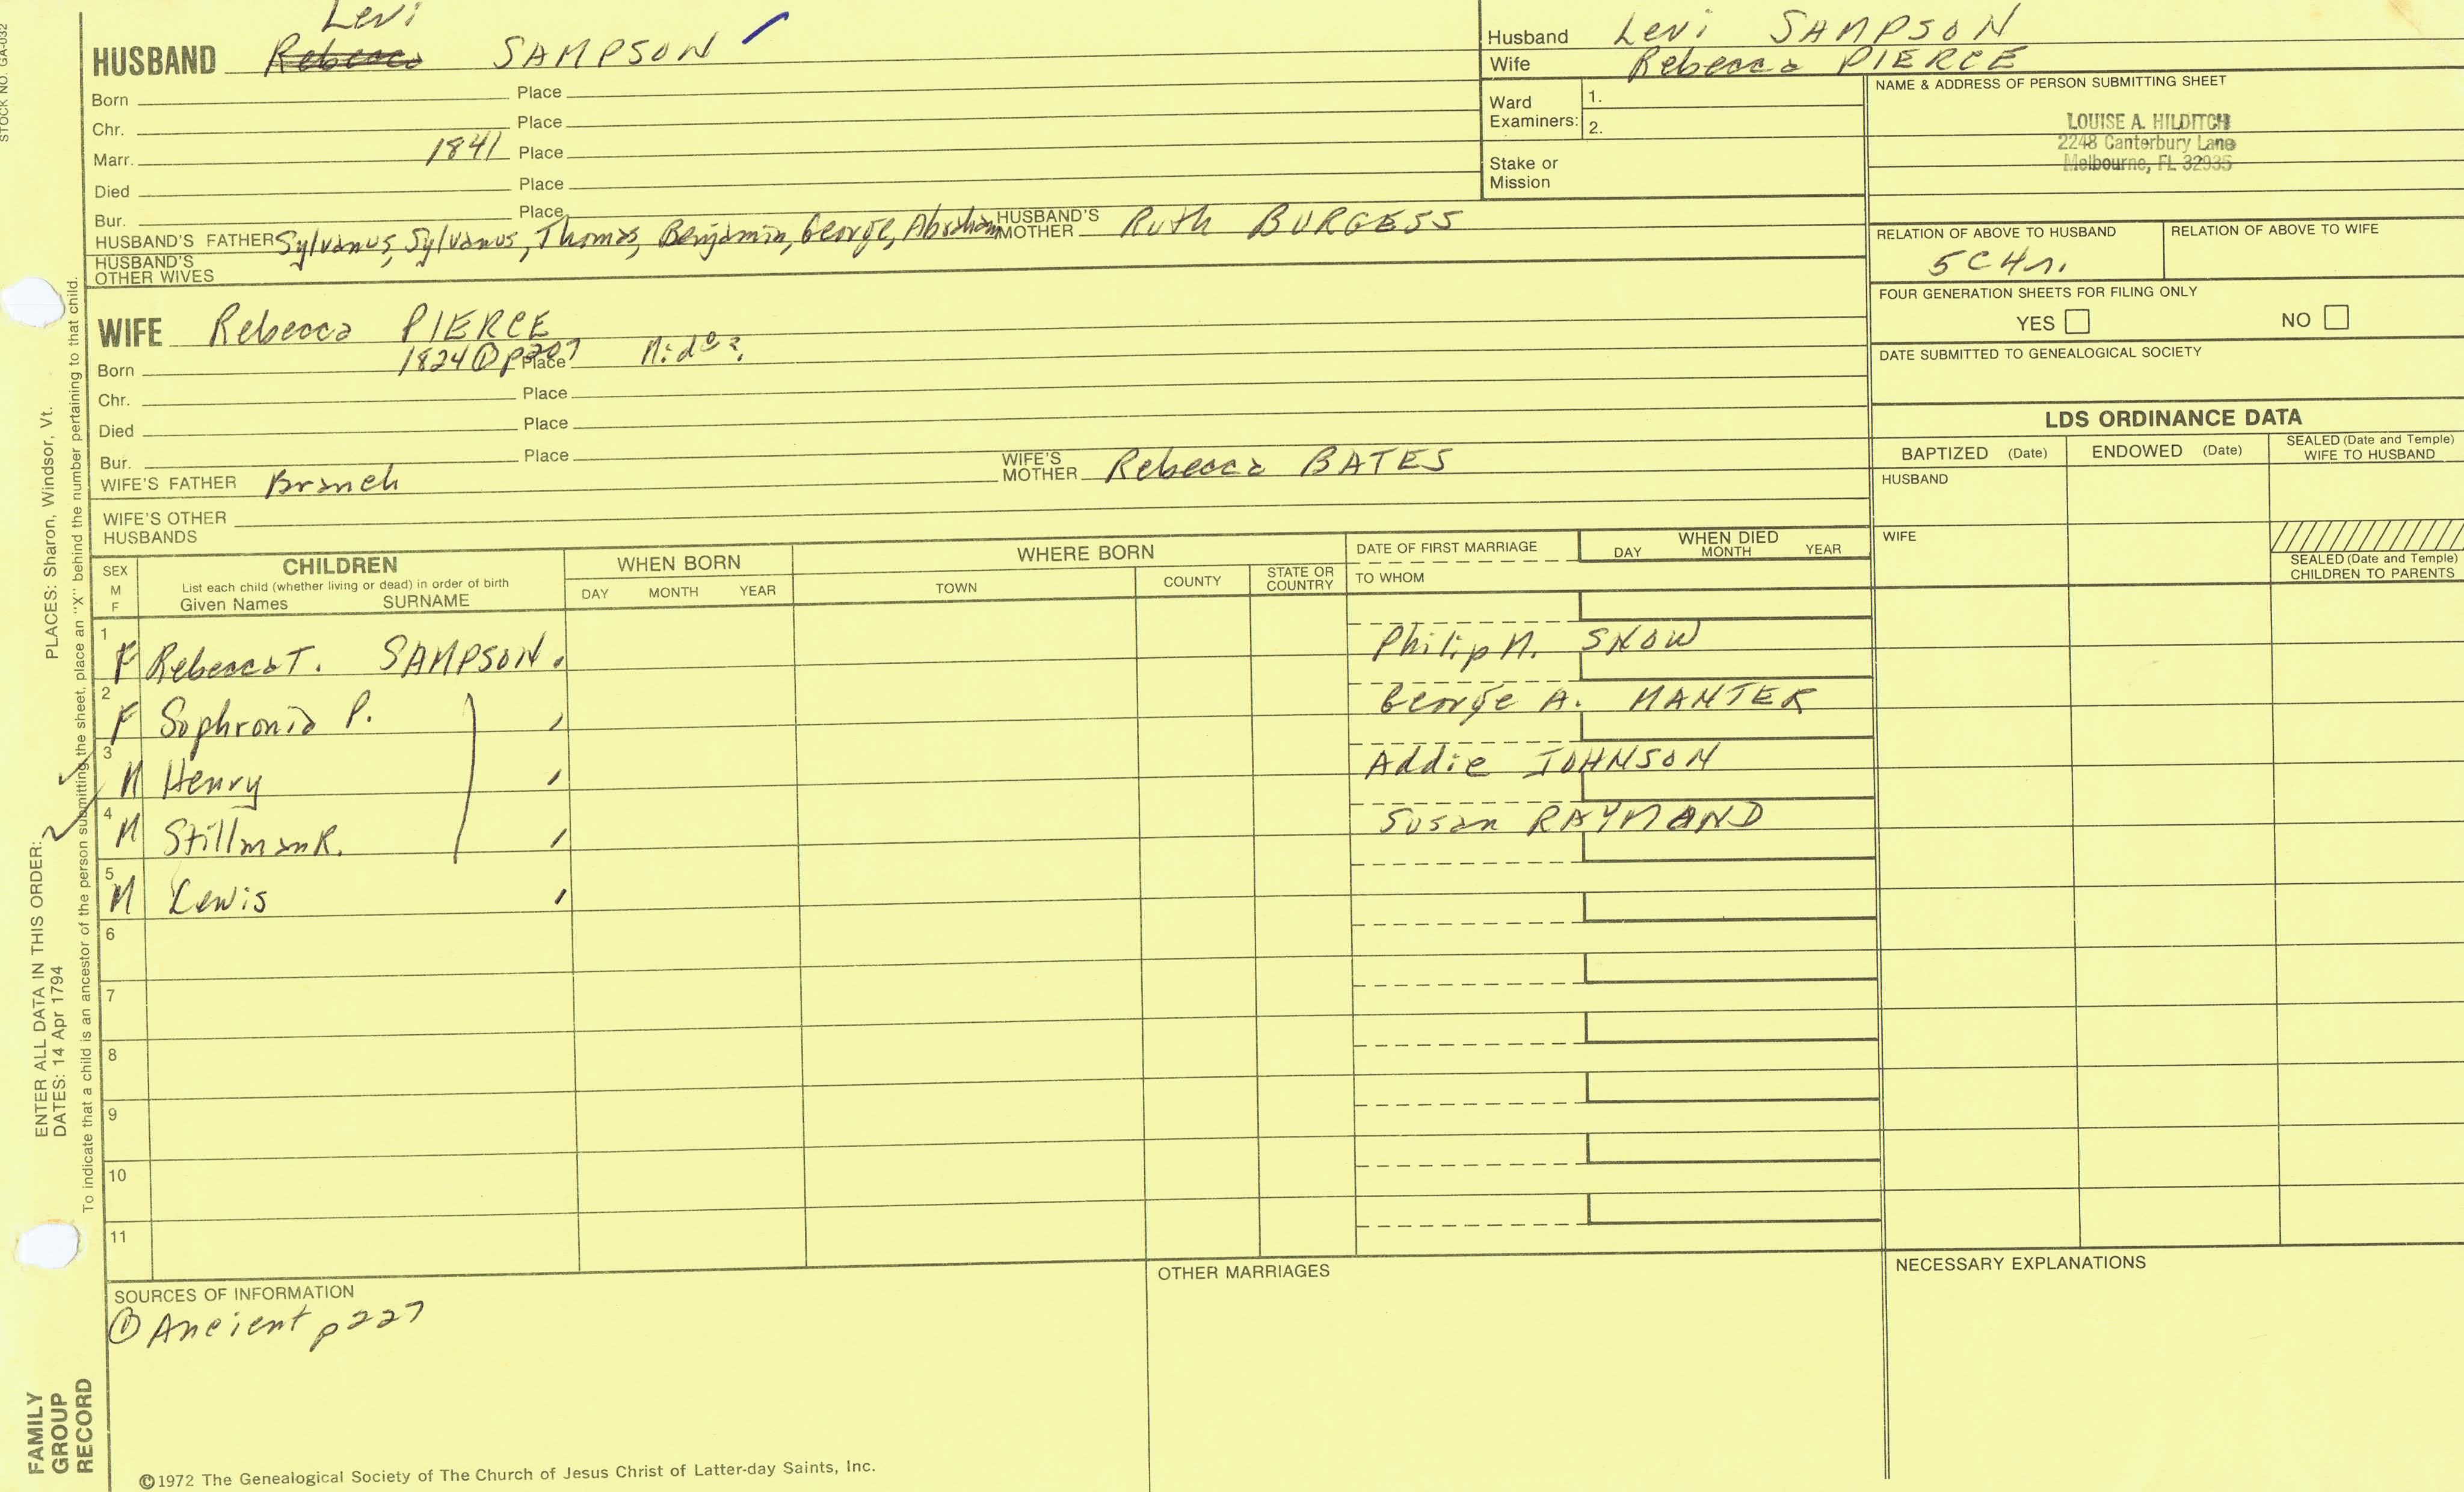 STOCK NO. GA-032
Levi
HUSBAND Rebecca SAMPSON
Born Place
Chr. Place
Marr. 1841 Place
Died Place
Bur. Place
HUSBAND'S FATHER Sylvanus, Sylvanus, Thomas, Benjamin, George, Abraham HUSBAND'S MOTHER Ruth BURGESS
HUSBAND'S OTHER WIVES
WIFE Rebecca PIERCE
Born 1824 ① p227 Place
Chr. Place
Died Place
Bur. Place
WIFE'S FATHER Branch WIFE'S MOTHER Rebecca BATES
WIFE'S OTHER HUSBANDS
Husband Levi SAMPSON
Wife Rebecca PIERCE
Ward Examiners: 1.
2.
Stake or Mission
NAME & ADDRESS OF PERSON SUBMITTING SHEET
LOUISE A. HILDITCH
2248 Canterbury Lane
Melbourne, FL 32935
RELATION OF ABOVE TO HUSBAND RELATION OF ABOVE TO WIFE
5C4r.
FOUR GENERATION SHEETS FOR FILING ONLY
YES NO
DATE SUBMITTED TO GENEALOGICAL SOCIETY
LDS ORDINANCE DATA
BAPTIZED (Date) ENDOWED (Date) SEALED (Date and Temple) WIFE TO HUSBAND
HUSBAND
WIFE
SEALED (Date and Temple) CHILDREN TO PARENTS
SEX M F
CHILDREN
List each child (whether living or dead) in order of birth
Given Names SURNAME
WHEN BORN
DAY MONTH YEAR
WHERE BORN
TOWN COUNTY STATE OR COUNTRY
DATE OF FIRST MARRIAGE
TO WHOM
WHEN DIED
DAY MONTH YEAR
1 F Rebecca T. SAMPSON Philip M. SNOW
2 F Sophronia P. George A. MANTER
3 M Henry Addie JOHNSON
4 M Stillman R. Susan RAYMAND
5 M Lewis
6
7
8
9
10
11
SOURCES OF INFORMATION
① Ancient p227
OTHER MARRIAGES
NECESSARY EXPLANATIONS
©1972 The Genealogical Society of The Church of Jesus Christ of Latter-day Saints, Inc.
FAMILY
GROUP
RECORD
ENTER ALL DATA IN THIS ORDER:
DATES: 14 Apr 1794
PLACES: Sharon, Windsor, Vt.
To indicate that a child is an ancestor of the person submitting the sheet, place an "X" behind the number pertaining to that child.